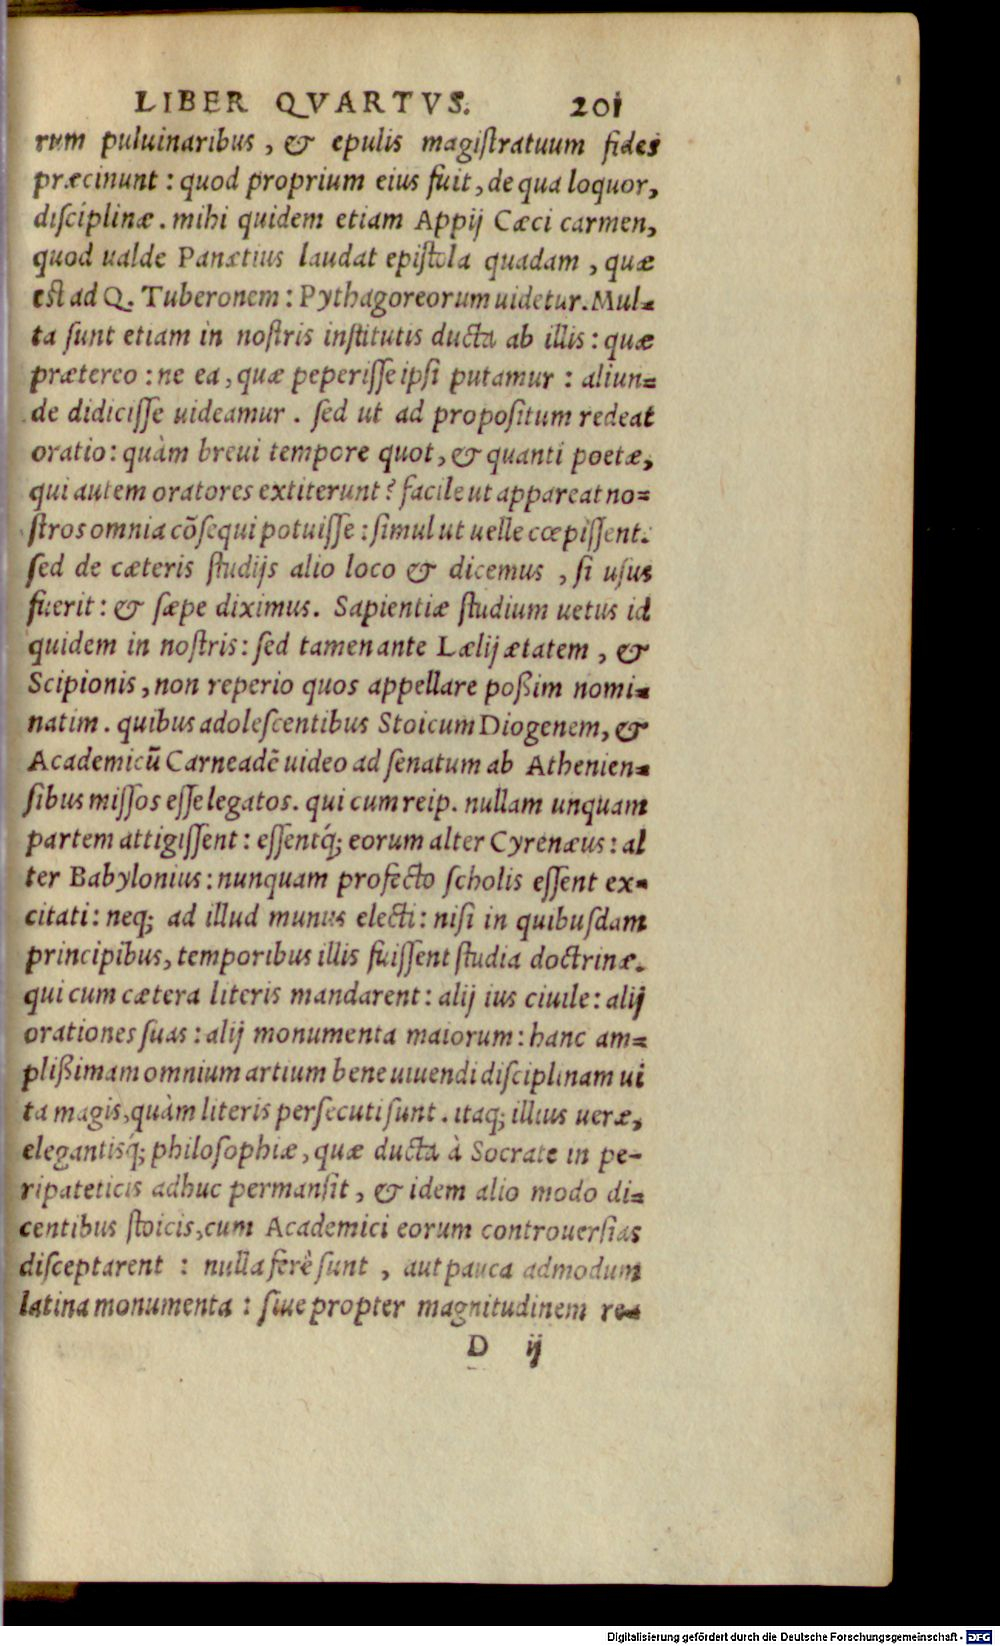 LIBER QVARTVS. 201
rum puluinaribus, & epulis magiſtratuum fides
præcinunt: quod proprium eius fuit, de qua loquor,
diſciplinæ. mihi quidem etiam Appij Cæci carmen,
quod ualde Panætius laudat epiſtola quadam, quæ
est ad Q. Tuberonem: Pythagoreorum uidetur. Mul-
ta ſunt etiam in noſtris inſtitutis ducta ab illis: quæ
prætereo: ne ea, quæ peperiſſe ipſi putamur: aliun-
de didiciſſe uideamur. ſed ut ad propoſitum redeat
oratio: quàm breui tempore quot, & quanti poetæ,
qui autem oratores extiterunt? facile ut appareat no-
ſtros omnia cõſequi potuiſſe: ſimul ut uelle cœpiſſent.
ſed de cæteris ſtudijs alio loco & dicemus, ſi uſus
fuerit: & ſæpe diximus. Sapientiæ ſtudium uetus id
quidem in noſtris: ſed tamen ante Lælij ætatem, &
Scipionis, non reperio quos appellare poßim nomi-
natim. quibus adoleſcentibus Stoicum Diogenem, &
Academicũ Carneadẽ uideo ad ſenatum ab Athenien-
ſibus miſſos eſſe legatos. qui cum reip. nullam unquam
partem attigiſſent: eſſentq́; eorum alter Cyrenæus: al
ter Babylonius: nunquam profecto ſcholis eſſent ex-
citati: neq; ad illud munus electi: niſi in quibuſdam
principibus, temporibus illis fuiſſent ſtudia doctrinæ.
qui cum cætera literis mandarent: alij ius ciuile: alij
orationes ſuas: alij monumenta maiorum: hanc am-
plißimam omnium artium bene uiuendi diſciplinam ui
ta magis, quàm literis perſecuti ſunt. itaq; illius ueræ,
elegantisq́; philoſophiæ, quæ ducta à Socrate in pe-
ripateticis adhuc permanſit, & idem alio modo di-
centibus ſtoicis, cum Academici eorum controuerſias
diſceptarent: nulla ferè ſunt, aut pauca admodum
latina monumenta: ſiue propter magnitudinem re-
D ij
Digitalisierung gefördert durch die Deutsche Forschungsgemeinschaft - DFG